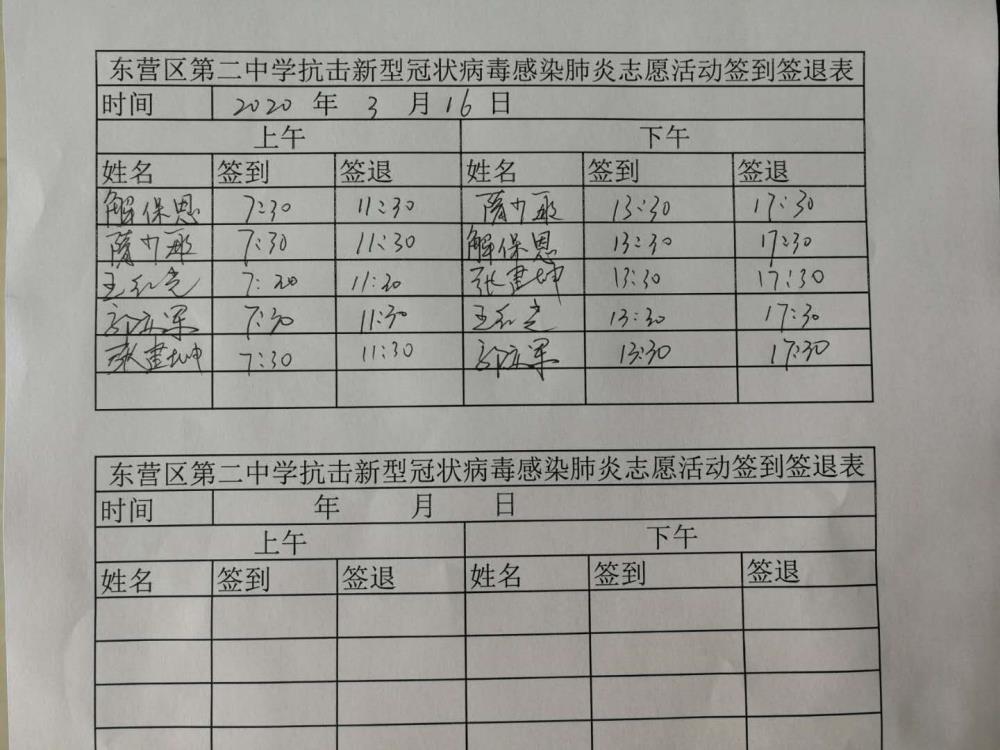 东营区第二中学抗击新型冠状病毒感染肺炎志愿活动签到签退表
时间 2020 年 3 月 16 日
上午 下午
姓名 签到 签退 姓名 签到 签退
解保恩 7:30 11:30 隋少 13:30 17:30
隋少 7:30 11:30 解保恩 13:30 17:30
王红光 7:30 11:30 张建坤 13:30 17:30
7:30 11:30 王红光 13:30 17:30
张建坤 7:30 11:30 13:30 17:30
东营区第二中学抗击新型冠状病毒感染肺炎志愿活动签到签退表
时间 年 月 日
上午 下午
姓名 签到 签退 姓名 签到 签退